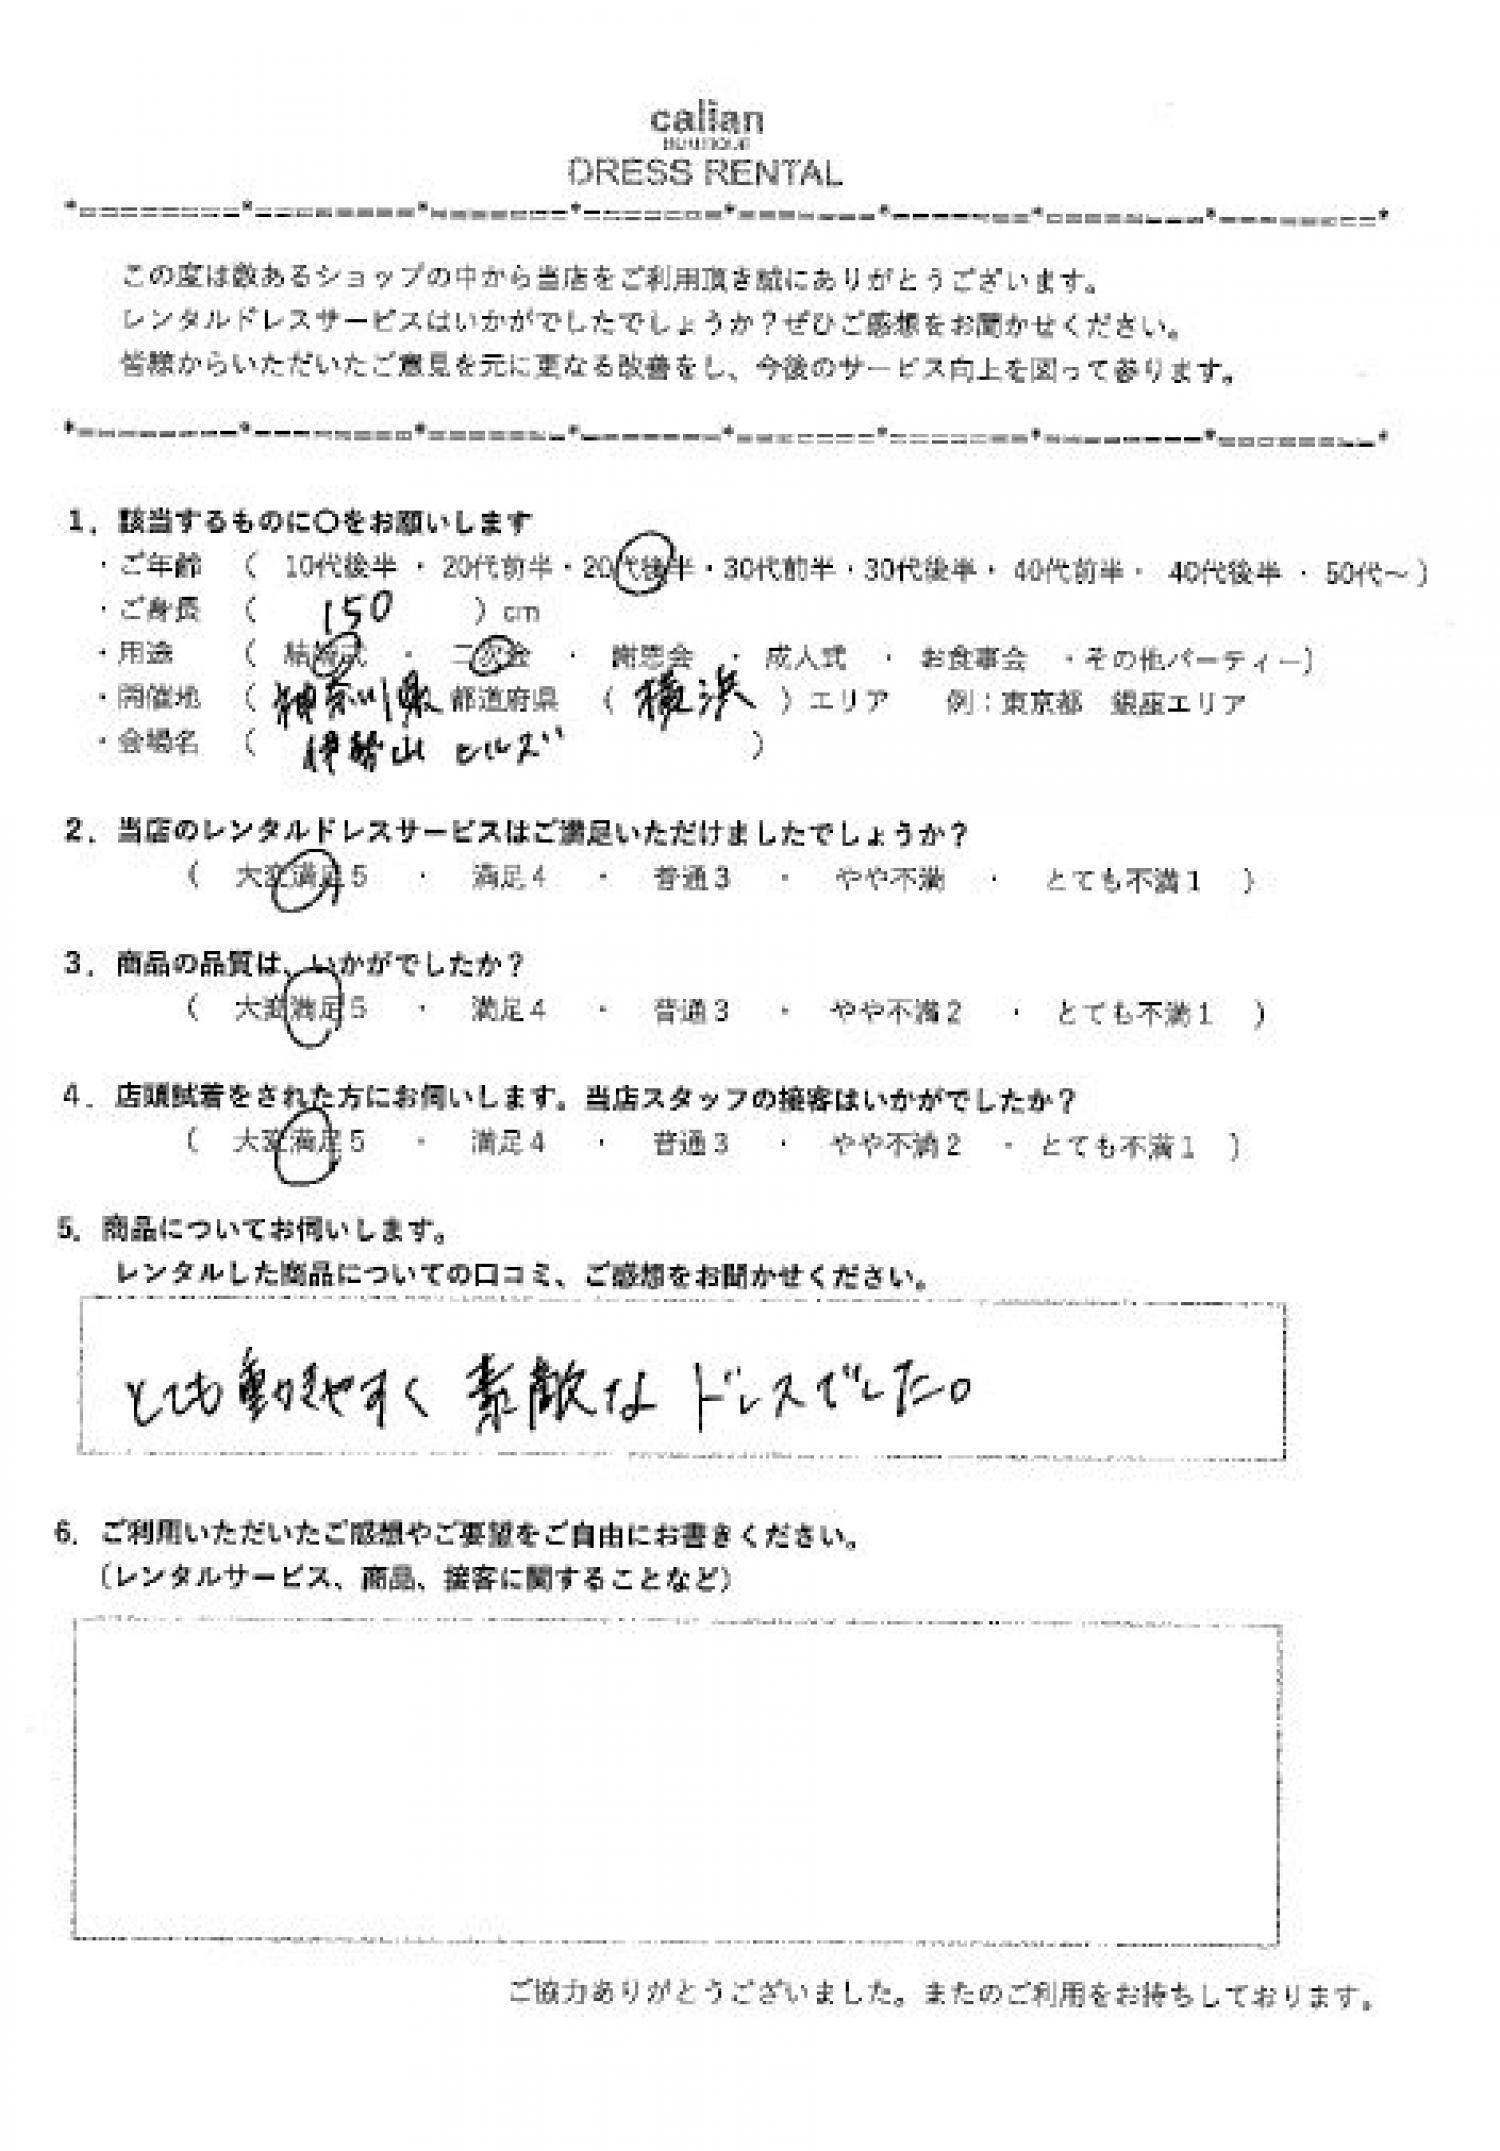 calian
BOUTIQUE
DRESS RENTAL
*=========*=========*========*========*========*========*=========*=========*
この度は数あるショップの中から当店をご利用頂き誠にありがとうございます。
レンタルドレスサービスはいかがでしたでしょうか？ぜひご感想をお聞かせください。
皆様からいただいたご意見を元に更なる改善をし、今後のサービス向上を図って参ります。
*=========*=========*========*========*========*========*=========*=========*
1．該当するものに〇をお願いします
・ご年齢 （ 10代後半 ・ 20代前半・20代後半・30代前半・30代後半・ 40代前半・ 40代後半 ・ 50代～）
・ご身長 （ 150 ）cm
・用途 （ 結婚式 ・ 二次会 ・ 謝恩会 ・ 成人式 ・ お食事会 ・その他パーティー）
・開催地 （ 神奈川県 都道府県 （ 横浜 ）エリア 例：東京都 銀座エリア
・会場名 （ 伊勢山 ヒルズ ）
2．当店のレンタルドレスサービスはご満足いただけましたでしょうか？
（ 大変満足5 ・ 満足4 ・ 普通3 ・ やや不満 ・ とても不満1 ）
3．商品の品質は、いかがでしたか？
（ 大変満足5 ・ 満足4 ・ 普通3 ・ やや不満2 ・ とても不満1 ）
4．店頭試着をされた方にお伺いします。当店スタッフの接客はいかがでしたか？
（ 大変満足5 ・ 満足4 ・ 普通3 ・ やや不満2 ・ とても不満1 ）
5．商品についてお伺いします。
レンタルした商品についての口コミ、ご感想をお聞かせください。
とても動きやすく 素敵な ドレスでした。
6．ご利用いただいたご感想やご要望をご自由にお書きください。
（レンタルサービス、商品、接客に関することなど）
ご協力ありがとうございました。またのご利用をお待ちしております。